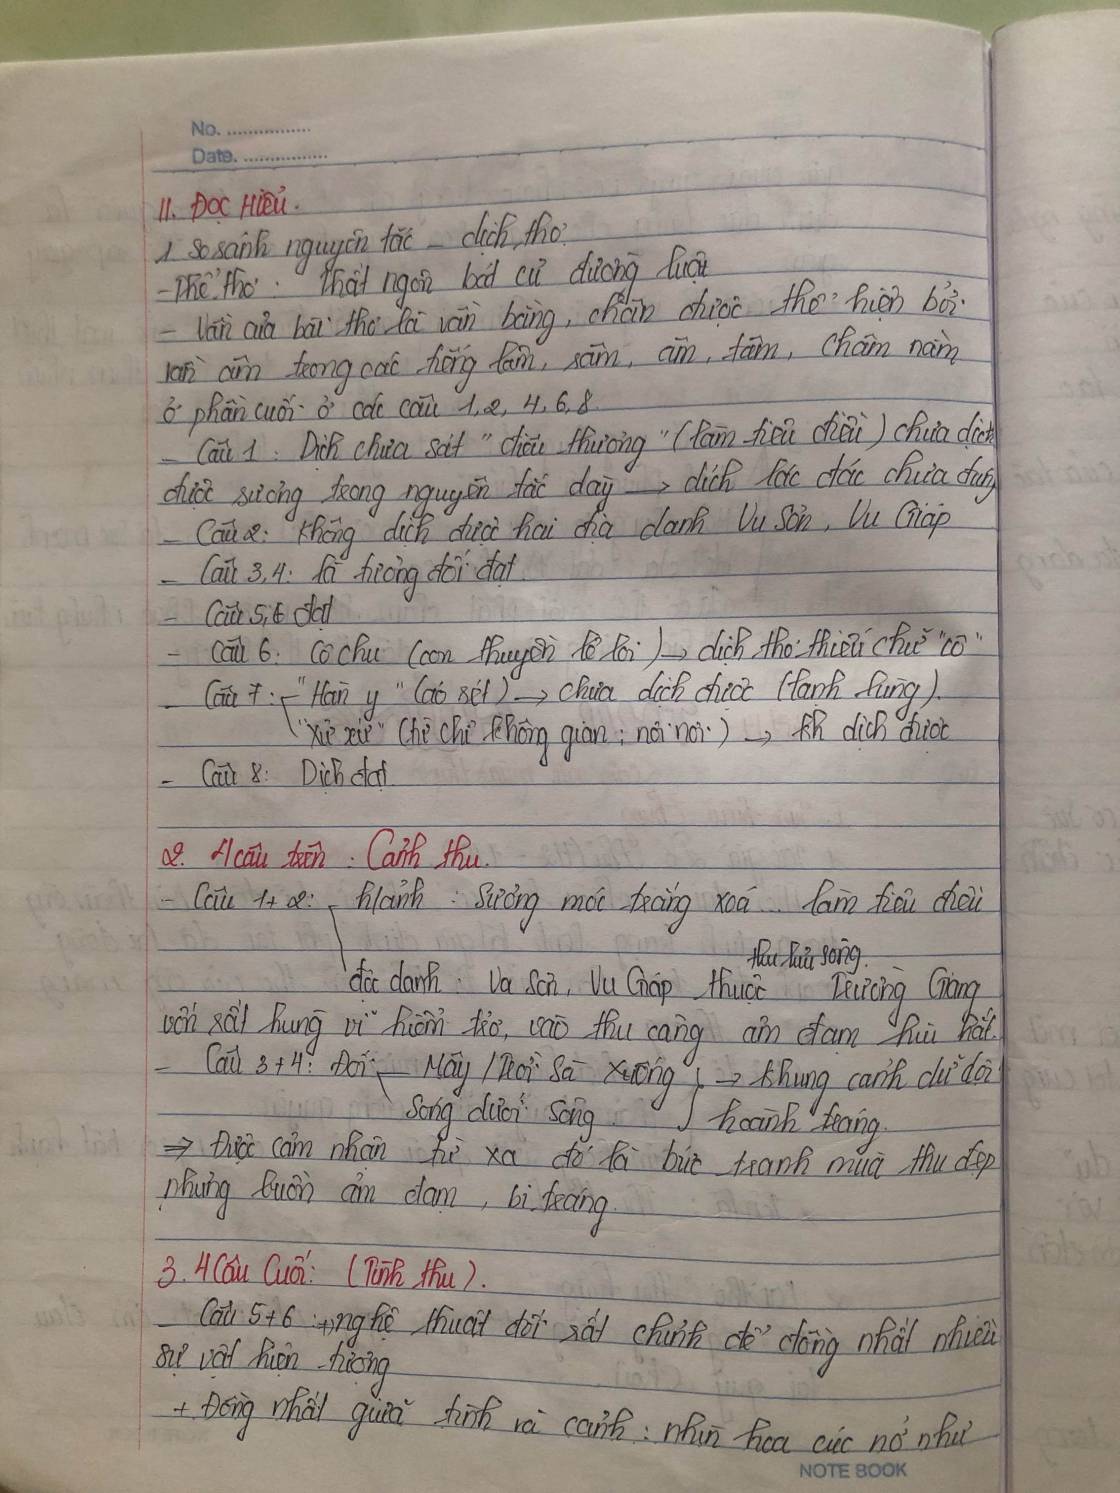 No. ................
Date. ................
II. ĐỌC HIỂU.
1 So sánh nguyên tác - dịch thơ.
- Thể thơ: Thất ngôn bát cú đường luật
- Vần của bài thơ là vần bằng, chân được thơ hiện bởi
vần âm trong các tiếng lâm, sâm, âm, tâm, châm nằm
ở phần cuối ở các câu 1, 2, 4, 6, 8.
- Câu 1: Dịch chưa sát "điêu thương" (làm tiêu điều) chưa dịch
được sương trong nguyên tác dày → dịch lác đác chưa đúng
- Câu 2: Không dịch được hai địa danh Vu Sơn, Vu Giáp
- Câu 3, 4: là tương đối đạt.
- Câu 5, 6 đạt
- Câu 6: Cô chu (con thuyền lẻ loi) → dịch thơ thiếu chữ "cô"
- Câu 7: "Hàn y" (áo rét) → chưa dịch được (lạnh lùng).
"xứ xứ" (từ chỉ không gian: nơi nơi) → kh dịch được
- Câu 8: Dịch đạt.
2. 4 câu trên: Cảnh thu.
- Câu 1+2: h/ảnh: Sương móc trắng xoá... làm tiêu điều
thu lưu sông.
độc danh: Va Sơn, Vu Giáp thuộc Trường Giang
vốn rất hung vĩ hiểm trở, vào thu càng ảm đạm hiu hắt.
- Câu 3+4: Đối: Mây / Trời Sà xuống → khung cảnh dữ dội
Sóng dưới sông hoành tráng.
⇒ Được cảm nhận từ xa đó là bức tranh mùa thu đẹp
nhưng buồn ảm đạm, bi tráng.
3. 4 Câu Cuối: (Tình thu).
- Câu 5+6: +, nghệ thuật đối rất chỉnh để đồng nhất nhiều
sự vật hiện tượng
+ Đồng nhất giữa tình và cảnh: nhìn hoa cúc nở như
NOTE BOOK